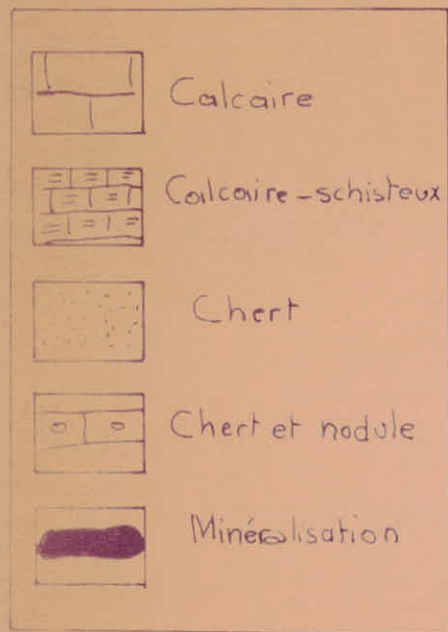 Calcaire
Calcaire-schisteux
Chert
Chert et nodule
Minéralisation